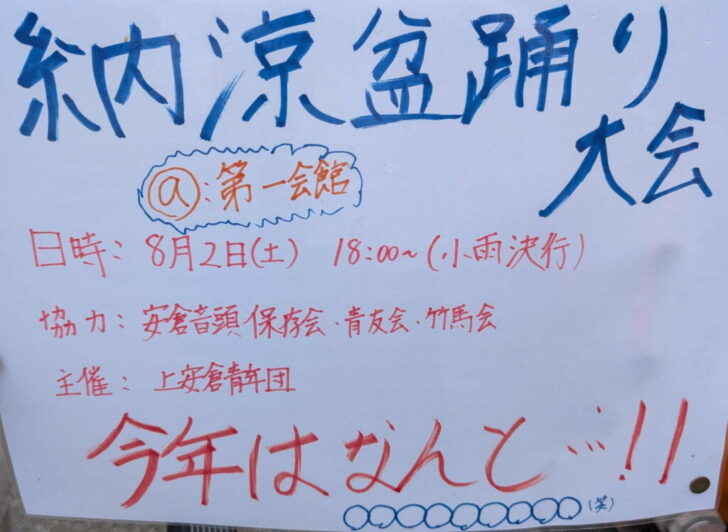 納涼盆踊り
大会
@:第一会館
日時: 8月2日(土) 18:00~(小雨決行)
協力: 安倉音頭保存会・青友会・竹馬会
主催: 上安倉青年団
今年はなんと…!!
○○○○○○○○○(笑)